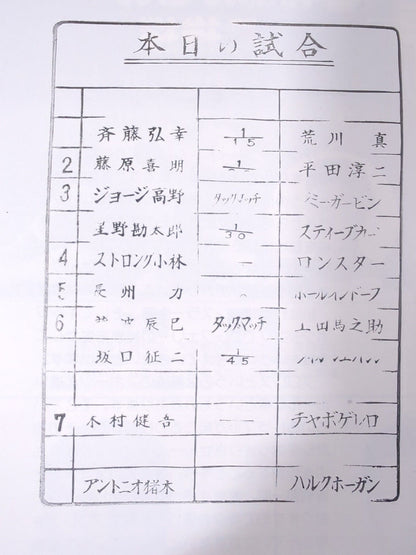 本日の試合
斉藤弘幸 1/15 荒川真
2 藤原喜明 平田淳二
3 ジョージ高野 タッグマッチ
星野勘太郎 1/30
4 ストロング小林 — ロンスター
5 長州力 -
6 辰巳 タッグマッチ 上田馬之助
坂口征二 1/45
7 木村健吾 — チャボゲレロ
アントニオ猪木 ハルクホーガン